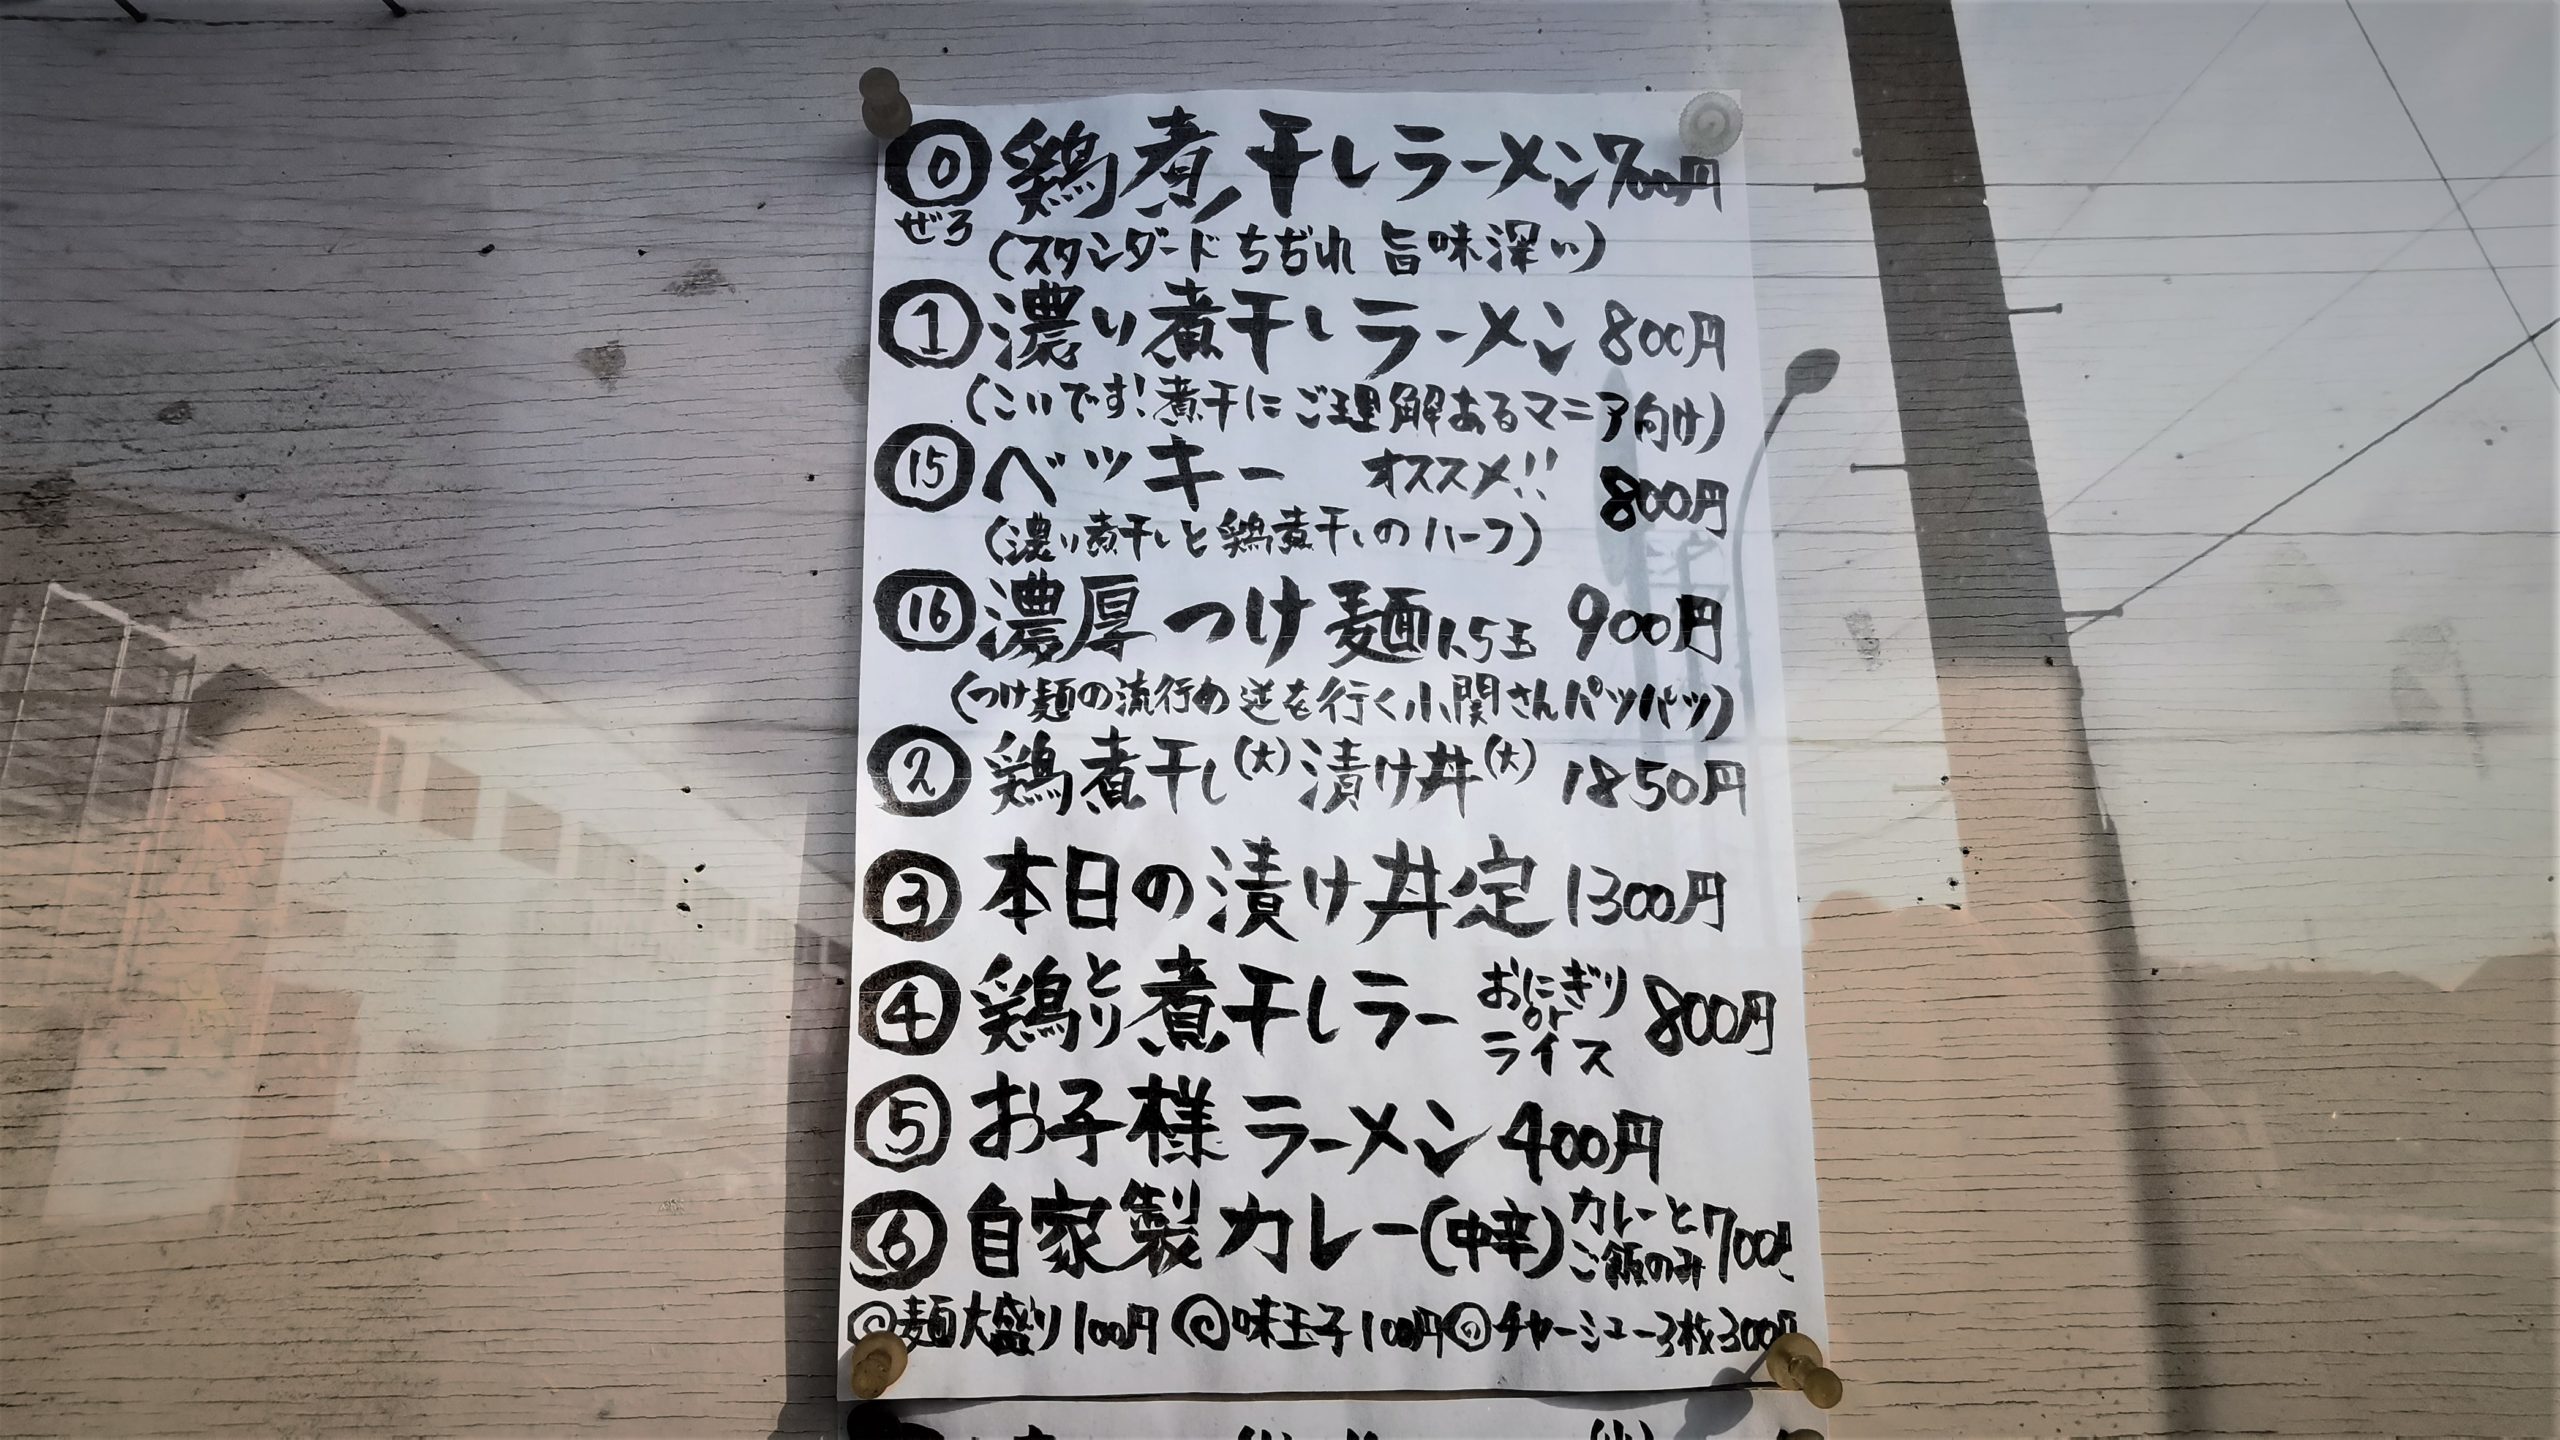 ⓪鶏煮干しラーメン700円
ぜろ
(スタンダード ちぢれ 旨味深い)
①濃い煮干しラーメン 800円
(こいです!煮干にご理解あるマニア向け)
⑮ベッキー オススメ!! 800円
(濃い煮干しと鶏煮干しのハーフ)
⑯濃厚つけ麺1.5玉 900円
(つけ麺の流行の逆を行く小関さんパツパツ)
②鶏煮干し(大)漬け丼(大) 1850円
③本日の漬け丼定 1300円
④鶏とり煮干しラー おにぎり or ライス 800円
⑤お子様ラーメン 400円
⑥自家製カレー(中辛) カレーとご飯のみ 700円
麺大盛り100円 味玉子100円 チャーシュー3枚300円